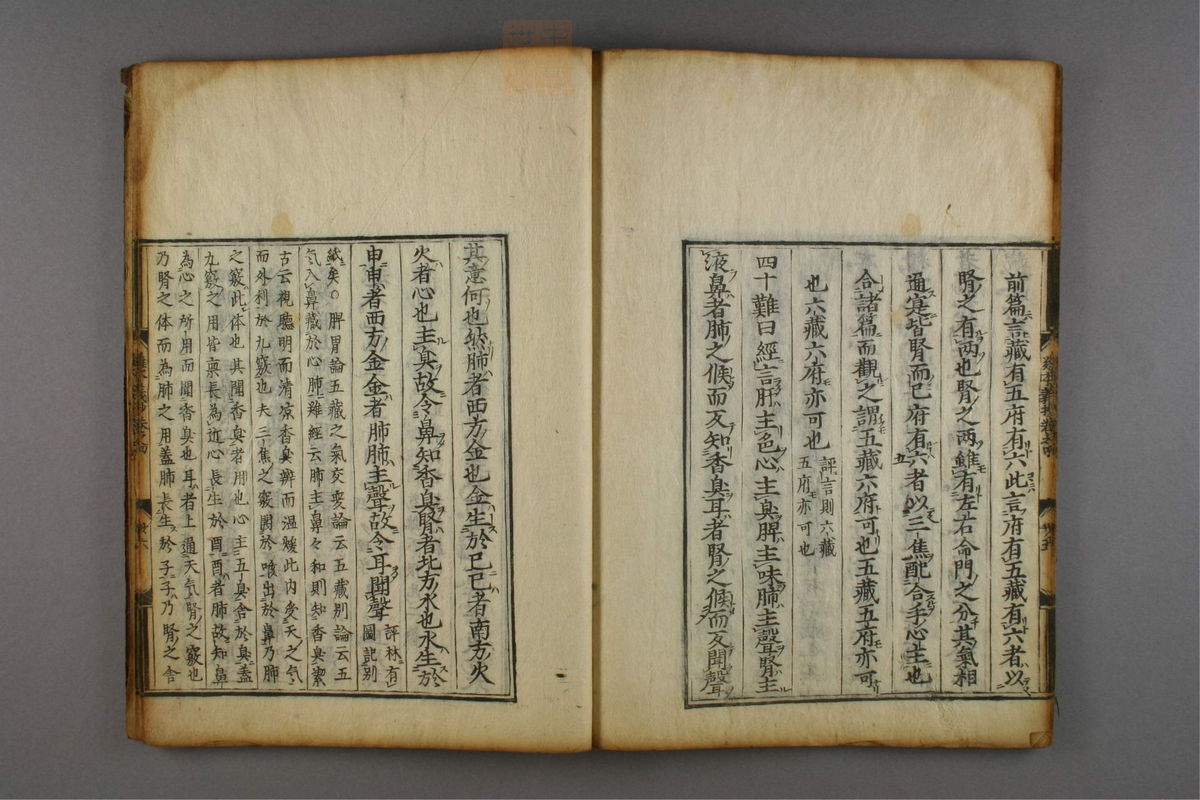 前篇言藏有五府有六此言府有五藏有六者以
腎之有两也腎之两雖有左右命門之分其氣相
通寔皆腎而已府有六者以三焦配合手心主也
五
合諸篇而觀之謂五藏六府可也五藏五府亦可
也六藏六府亦可也
評言則六藏
五府亦可也
四十難曰經言肝主色心主臭脾主味肺主聲腎主
液鼻者肺之候而反知香臭耳者腎之候而反聞聲
其意何也然肺者西方金也金生於巳巳者南方火
火者心也主臭故令鼻知香臭腎者北方水也水生於
申申者西方金金者肺肺主聲故令耳聞聲
評林有
圖記別
紙矣○脾胃論五藏之氣交変論云五藏別論云五
气入鼻藏於心肺難經云肺主鼻々和則知香臭潔
古云視聽明而清凉香臭辨而温煖此内受天之气
而外利於九竅也夫三焦之竅開於喉出於鼻乃肺
之竅此体也其聞香臭者用也心主五臭舍於臭盖
九竅之用皆禀長為近心長生於酉酉者肺故知鼻
為心之所用而聞香臭也耳者上通天气腎之竅也
乃腎之体而為肺之用盖肺長生於子子乃腎之舍
卅六